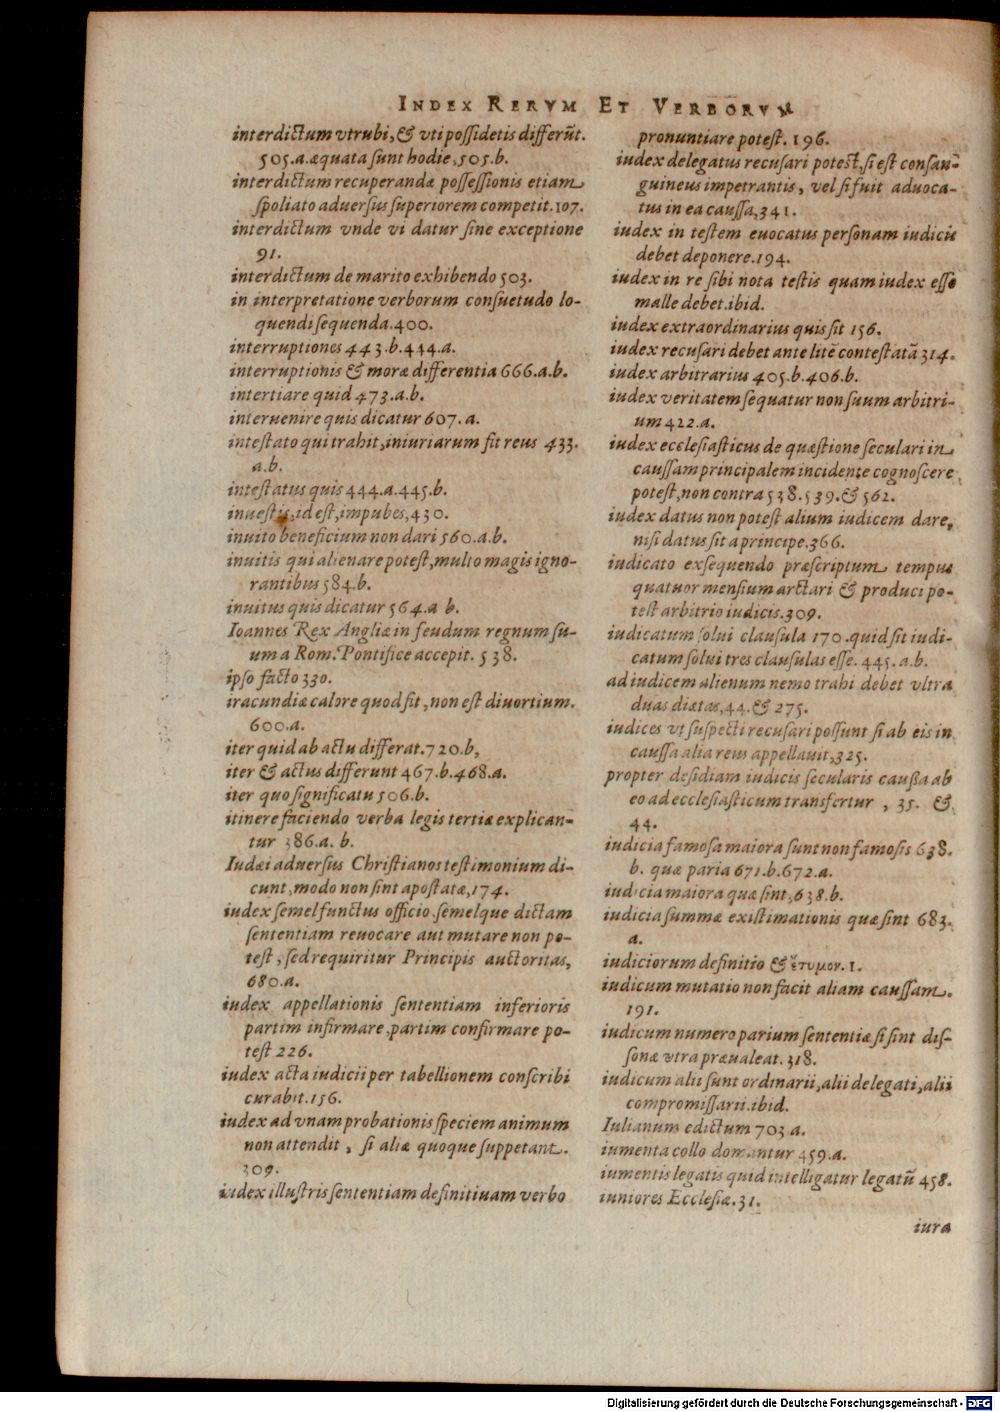 INDEX RERVM ET VERBORVM
interdictum vtrubi, & vti possidetis differūt.
505.a.æquata sunt hodie,505.b.
interdictum recuperandæ possessionis etiam
spoliato aduersus superiorem competit.107.
interdictum vnde vi datur sine exceptione
91.
interdictum de marito exhibendo 503.
in interpretatione verborum consuetudo lo-
quendi sequenda.400.
interruptiones 443.b.444.a.
interruptionis & moræ differentia 666.a.b.
intertiare quid 473.a.b.
interuenire quis dicatur 607.a.
intestato qui trahit,iniuriarum fit reus 433.
a.b.
intestatus quis 444.a.445.b.
inuestis,id est,impubes,430.
inuito beneficium non dari 560.a.b.
inuitis qui alienare potest,multo magis igno-
rantibus 584.b.
inuitus quis dicatur 564.a b.
Ioannes Rex Angliæ in feudum regnum su-
um a Rom. Pontifice accepit. 538.
ipso facto 330.
iracundiæ calore quod fit, non est diuortium.
600.a.
iter quid ab actu differat.720.b,
iter & actus differunt 467.b.468.a.
iter quo significatu 506.b.
itinere faciendo verba legis tertiæ explican-
tur 386.a. b.
Iudæi aduersus Christianos testimonium di-
cunt,modo non sint apostatæ,174.
iudex semel functus officio,semelque dictam
sententiam reuocare aut mutare non po-
test, sed requiritur Principis auctoritas,
680.a.
iudex appellationis sententiam inferioris
partim infirmare,partim confirmare po-
test 226.
iudex acta iudicii per tabellionem conscribi
curabit.156.
iudex ad vnam probationis speciem animum
non attendit, si aliæ quoque suppetant.
309.
iudex illustris sententiam definitiuam verbo
pronuntiare potest. 196.
iudex delegatus recusari potest,si est consan-
guineus impetrantis, vel si fuit aduoca-
tus in ea caussa,341.
iudex in testem euocatus personam iudicis
debet deponere.194.
iudex in re sibi nota testis quam iudex esse
malle debet.ibid.
iudex extraordinarius quis sit 156.
iudex recusari debet ante litē contestatā 314.
iudex arbitrarius 405.b.406.b.
iudex veritatem sequatur non suum arbitri-
um 422.a.
iudex ecclesiasticus de quæstione seculari in
caussam principalem incidente cognoscere
potest,non contra 538.539.& 562.
iudex datus non potest alium iudicem dare,
nisi datus sit a principe.366.
iudicato exsequendo præscriptum tempus
quatuor mensium arctari & produci po-
test arbitrio iudicis.309.
iudicatum solui clausula 170.quid sit iudi-
catum solui tres clausulas esse. 445.a.b.
ad iudicem alienum nemo trahi debet vltra
duas diætas,44.& 275.
iudices vt suspecti recusari possunt si ab eis in
caussa alia reus appellauit,325.
propter desidiam iudicis secularis caußa ab
eo ad ecclesiasticum transfertur, 35. &
44.
iudicia famosa maiora sunt non famosis 638.
b. quæ paria 671.b.672.a.
iudicia maiora quæ sint,638.b.
iudicia summæ existimationis quæ sint 683.
a.
iudiciorum definitio & ἔτυμον.1.
iudicum mutatio non facit aliam caussam.
191.
iudicum numero parium sententiæ si sint dis-
sonæ vtra præualeat.318.
iudicum alii sunt ordinarii,alii delegati,alii
compromissarii.ibid.
Iulianum edictum 703 a.
iumenta collo domantur 459.a.
iumentis legatis quid intelligatur legatū 458.
iuniores Ecclesiæ.31.
iura
Digitalisierung gefördert durch die Deutsche Forschungsgemeinschaft - DFG